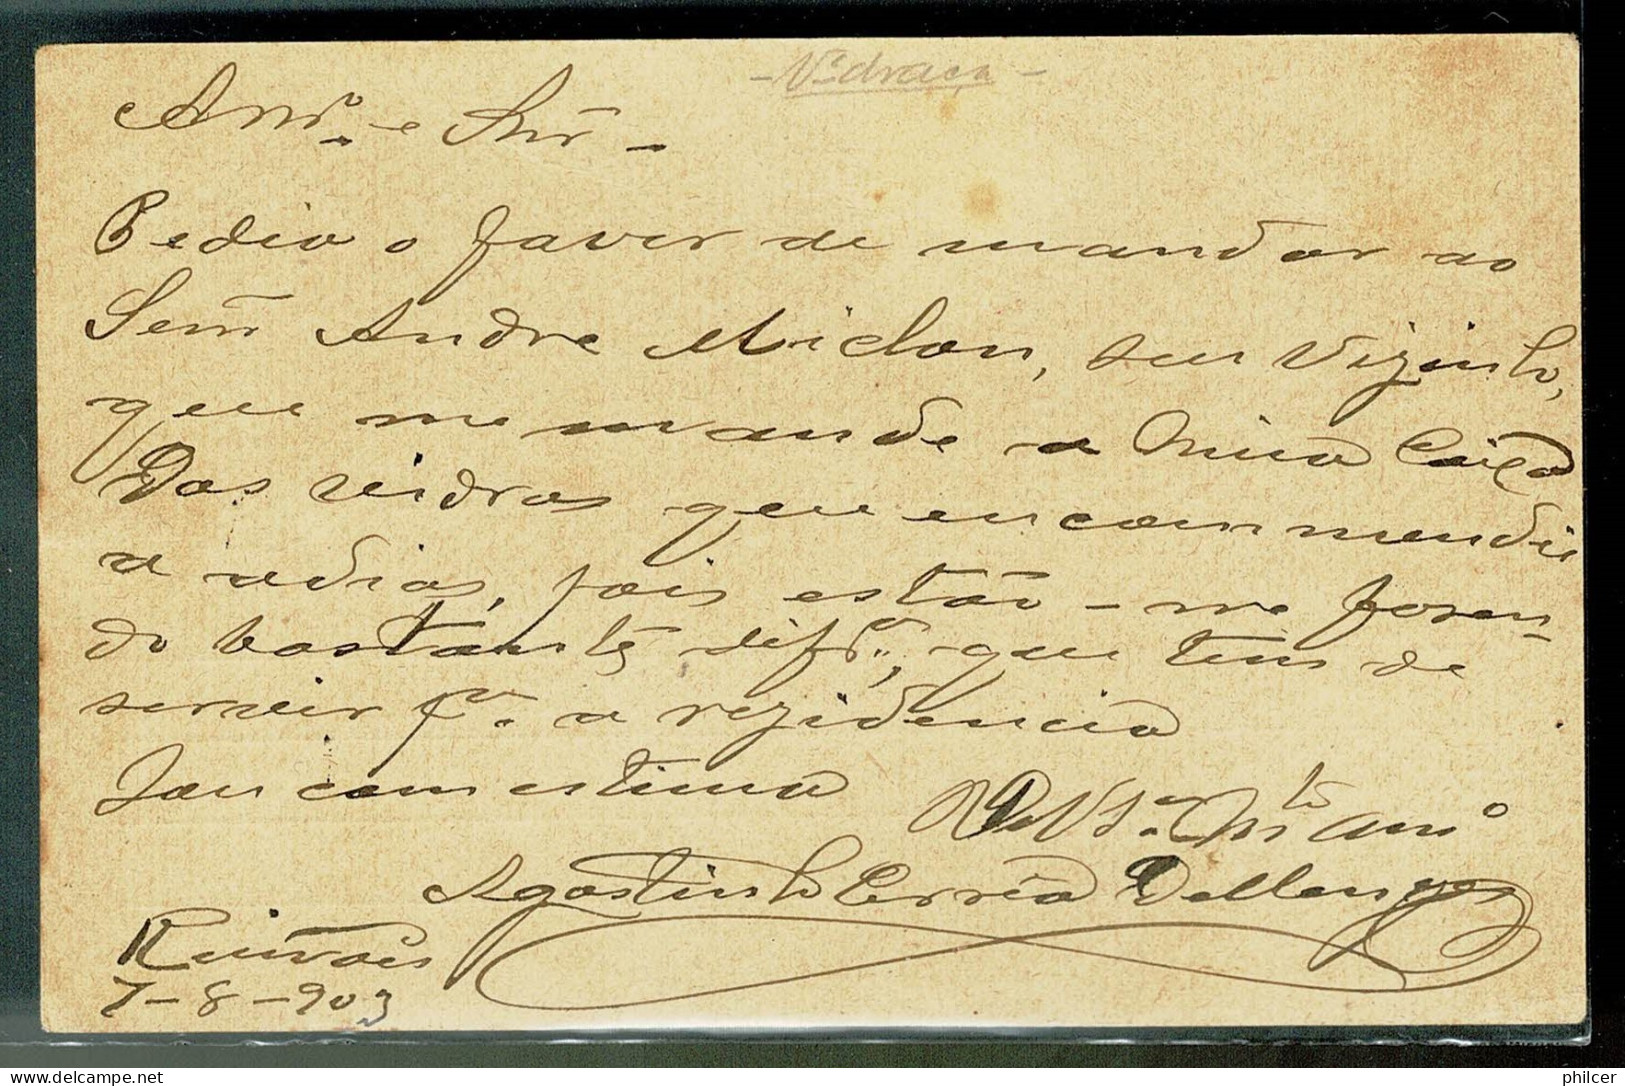 - Vidraça -
Amº. e Snr.
Pedia o favor de mandar ao
Senr André Michon, seu vizinho,
que me mande a Caixa
Dos vidros que encommendei
a dias, pois estão-me fazen-
do bastante que tem de
servir pª. a rezidencia
Sou com estima De Vª. Mtº Amº
Agostinho Corrêa
Ruivães
7-8-903
philcer